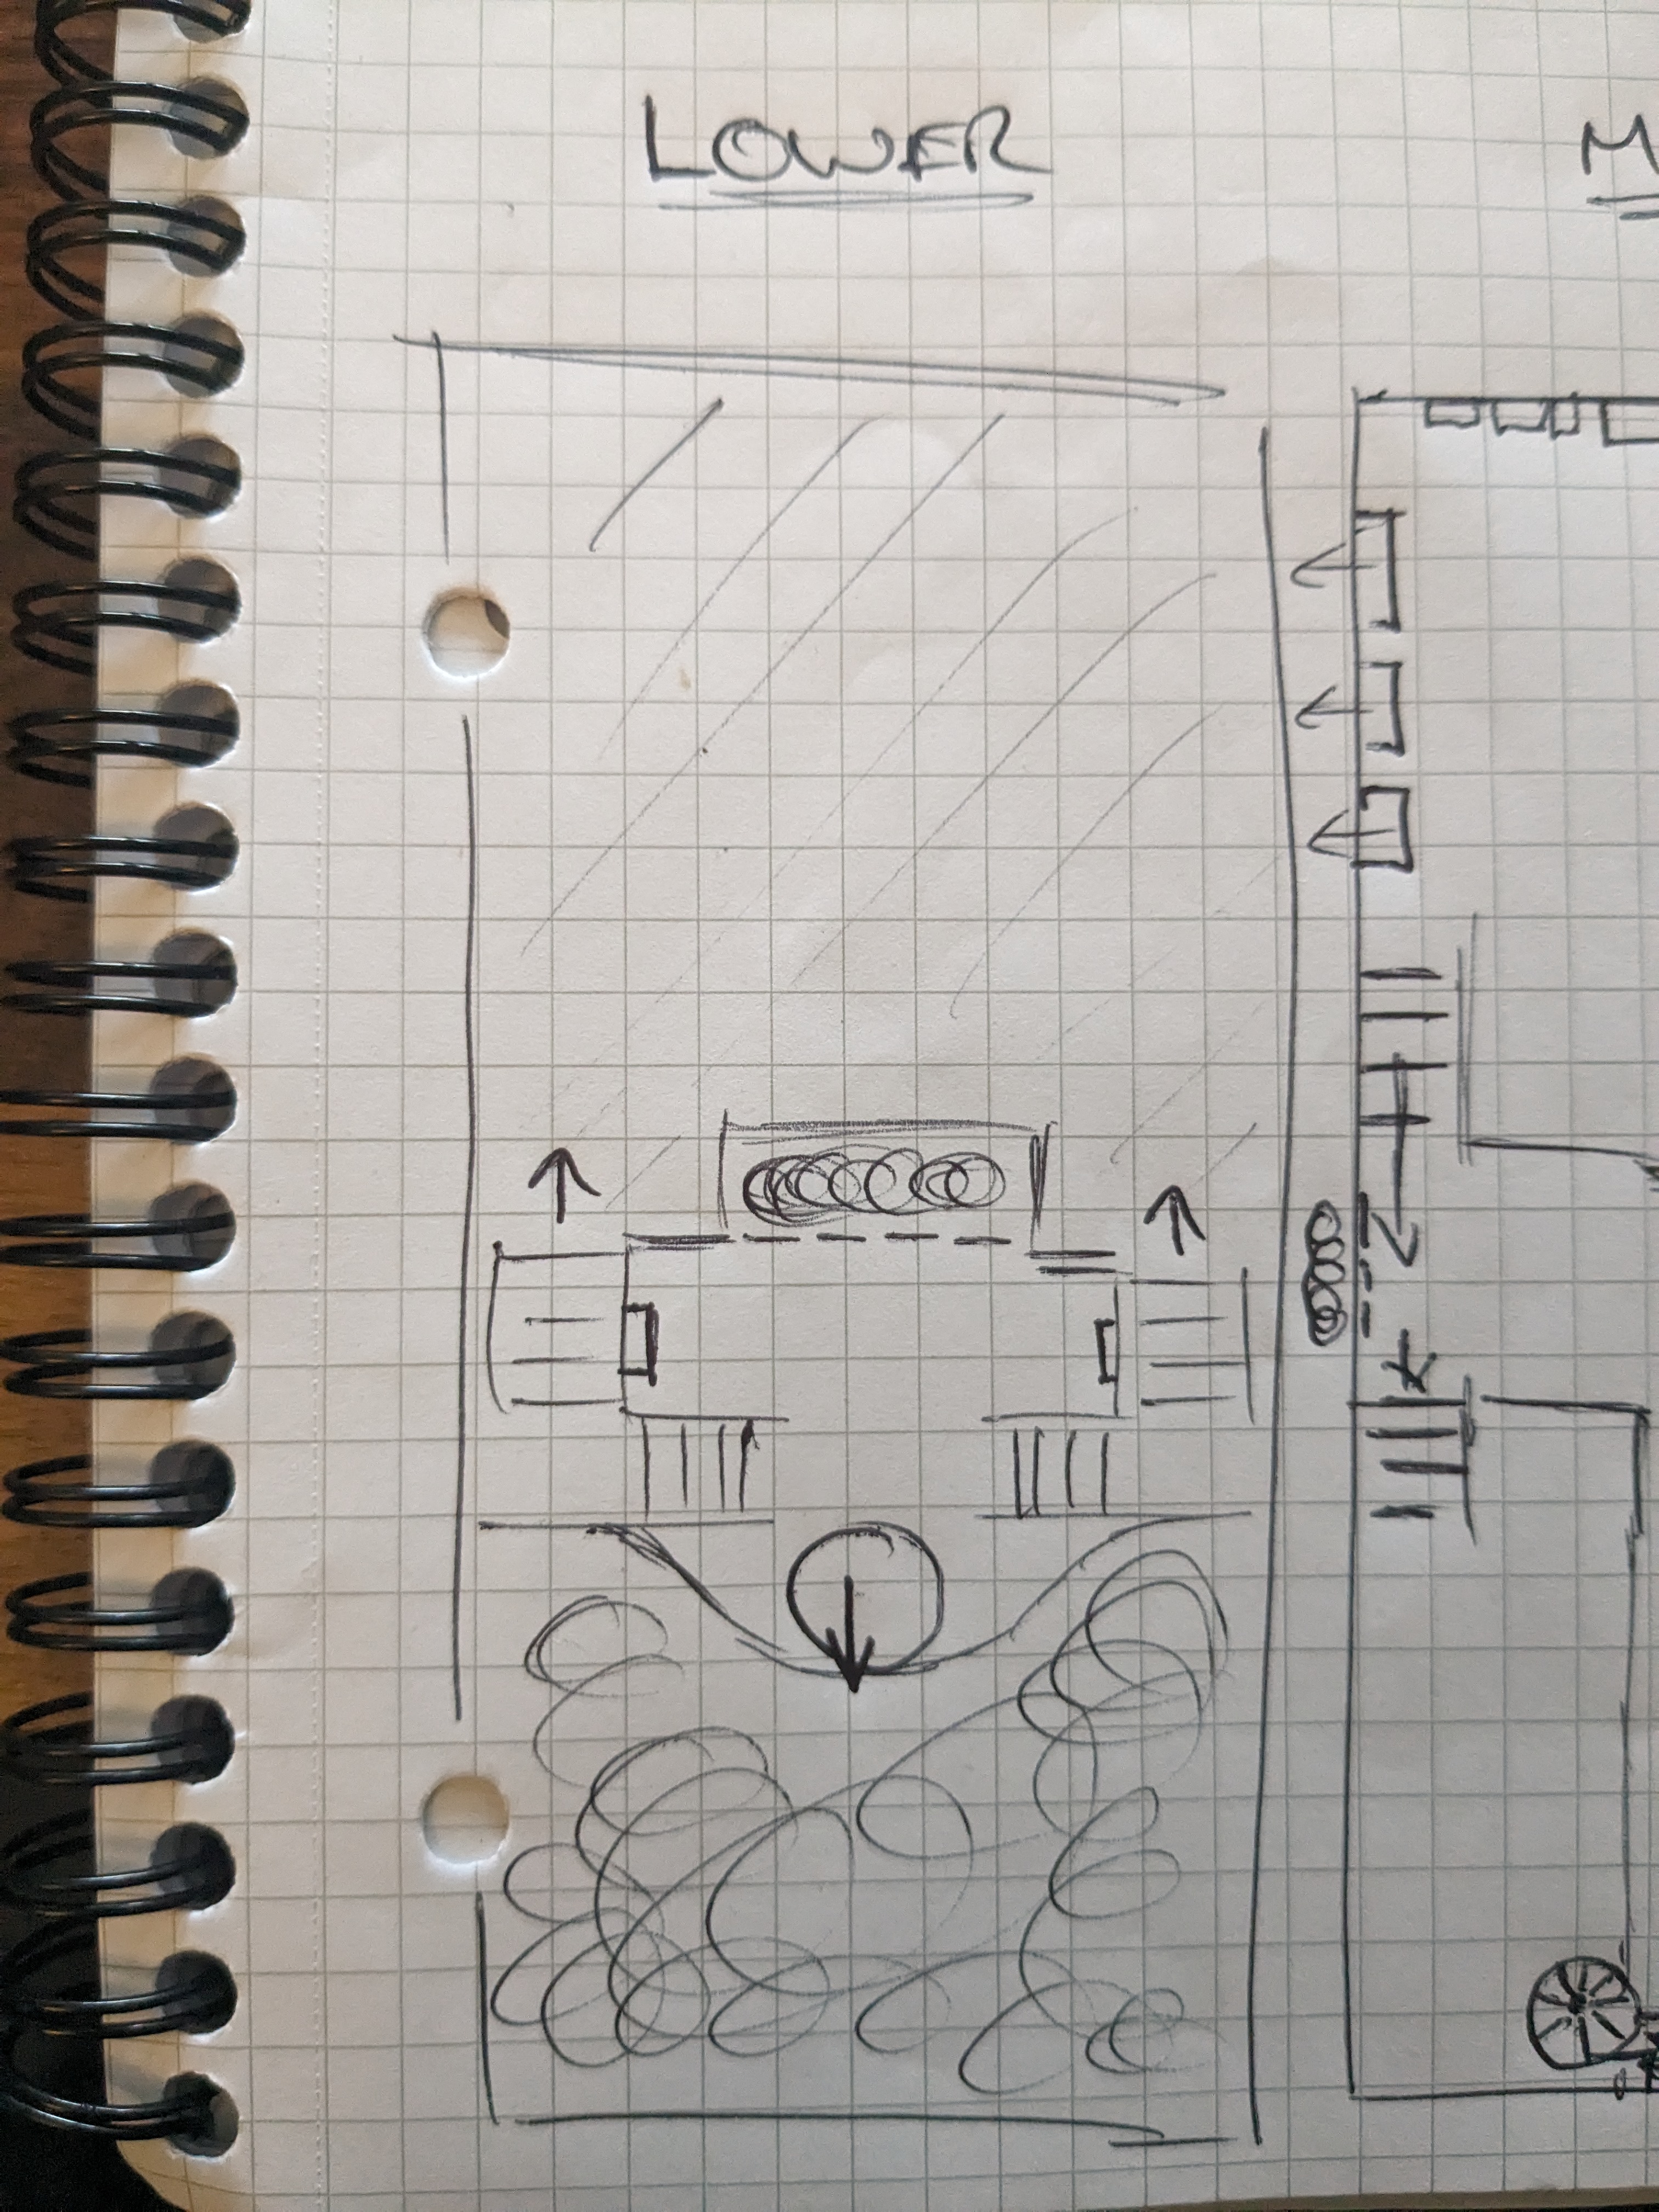 LOWER
M